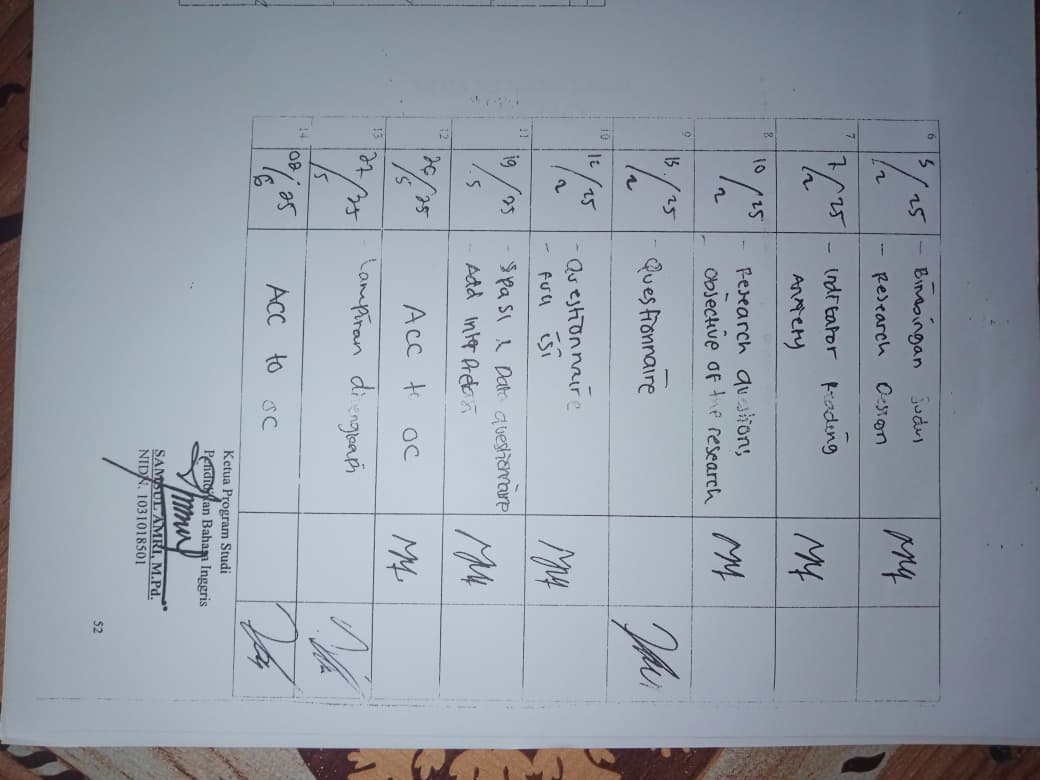 6
5/2 25
- Bimbingan judul
- Research Design
7
7/2 25
- Indikator Reading
Anxiety
8
10/2 25
- Research questions
- Objective of the research
9
13/2 25
- Questionnaire
10
12/2 25
- Questionnaire
- isi
11
19/5 25
- Spasi & Data questionare
- Add Interpretasi
12
26/5 25
ACC to SC
13
27/5 25
- Lampiran dilengkapi
14
08/6 25
ACC to SC
Ketua Program Studi
Pendidikan Bahasa Inggris
SAMSUL AMRI, M.Pd.
NIDN. 1031018501
52